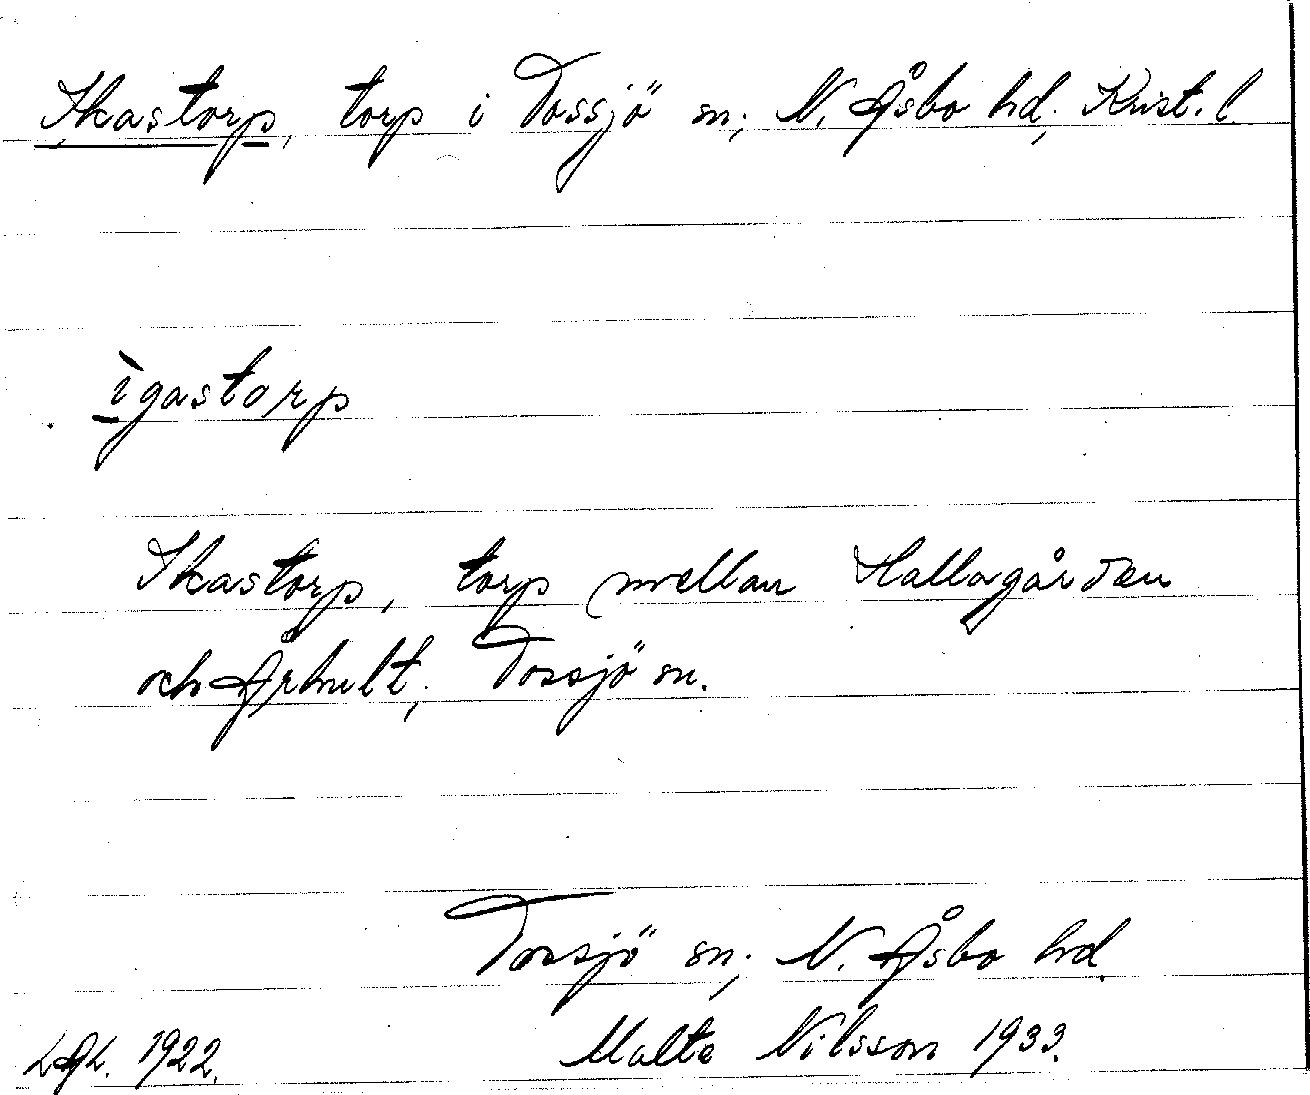 Ikastorp, torp i Tossjö sn; N. Åsbo hd; Krist. l.
ìgastorp
Ikastorp, torp mellan Hallagården
och Århult, Tossjö sn.
Tossjö sn; N. Åsbo hd.
LAL. 1922. Malte Nilsson 1933.